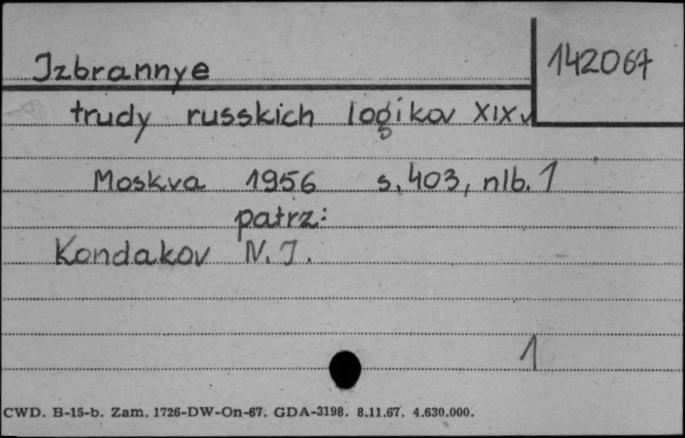 Izbrannye
142067
trudy russkich logikov XIXv
Moskva 1956 s. 403, nlb. 1
patrz:
Kondakov N. I.
1
CWD. B-15-b. Zam. 1726-DW-On-67. GDA-3198. 8.11.67. 4.630.000.